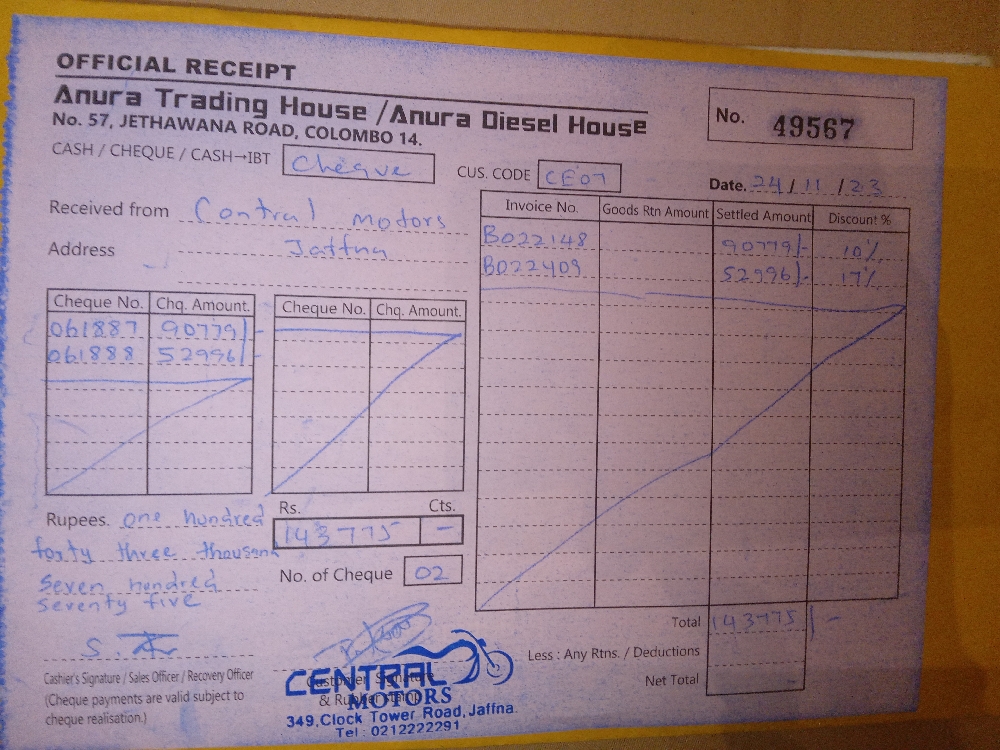 OFFICIAL RECEIPT
Anura Trading House /Anura Diesel House
No. 57, JETHAWANA ROAD, COLOMBO 14.
No. 49567
CASH / CHEQUE / CASH→IBT Cheque
CUS. CODE CE07
Date. 24/11/23
Received from Central motors
Address Jaffna
Invoice No. Goods Rtn Amount Settled Amount Discount %
B022148 90779/- 10%
B022409 52996/- 17%
Cheque No. Chq. Amount. Cheque No. Chq. Amount.
061887 90779/-
061888 52996/-
Rupees. one hundred
forty three thousand
seven hundred
seventy five
Rs. Cts.
143775 -
No. of Cheque 02
Total 143775/-
Less : Any Rtns. / Deductions
Net Total
Cashier's Signature / Sales Officer / Recovery Officer
(Cheque payments are valid subject to
cheque realisation.)
Customer Signature
& Rubber Stamp
CENTRAL
MOTORS
349,Clock Tower Road,Jaffna.
Tel : 0212222291